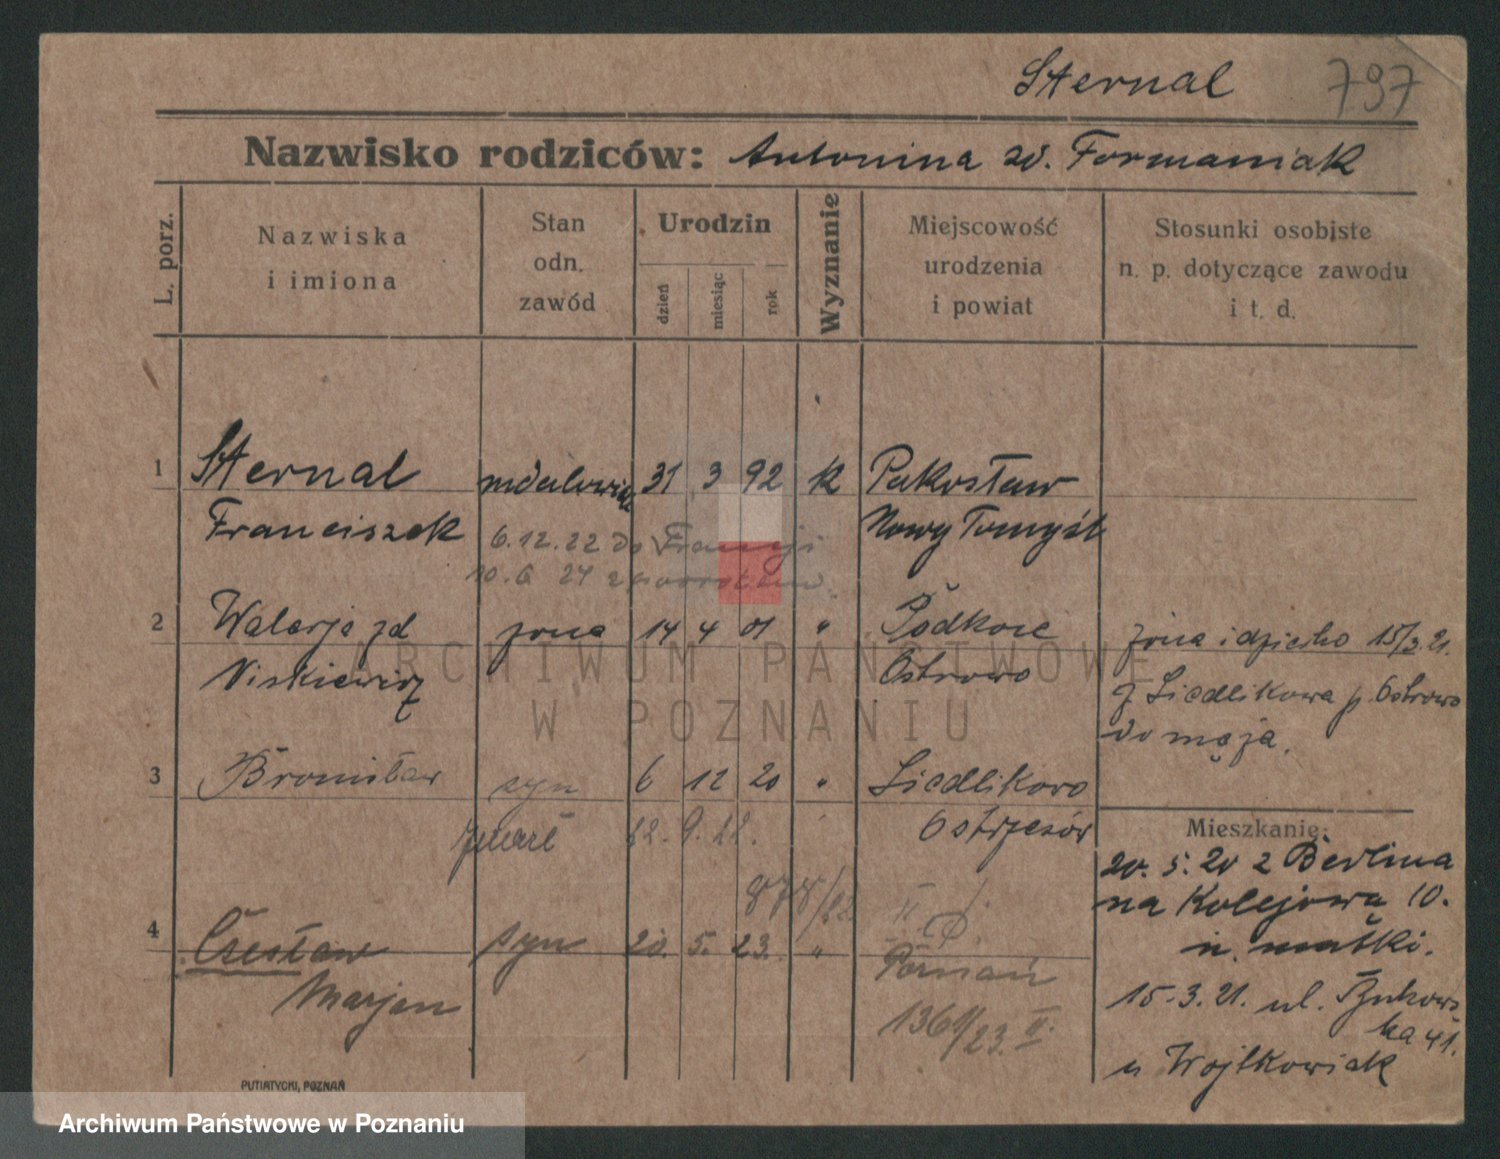 Sternal 797
Nazwisko rodziców: Antonina zd. Formaniak
L. porz.
Nazwiska
i imiona
Stan
odn.
zawód
Urodzin
dzień
miesiąc
rok
Wyznanie
Miejscowość
urodzenia
i powiat
Stosunki osobiste
n. p. dotyczące zawodu
i t. d.
1 Sternal 31 3 92 k Pakosław
Franciszek Nowy Tomyśl
6.12.22 do Francji
10.6 24 z powrotem.
2 Walerja zd żona 14 4 01 " Podkoce
Niskiewicz Ostrowo
żona i dziecko 15/3.21.
z Siedlikowa p. Ostrowo
do męża.
3 Bronisław syn 6 12 20 " Siedlikowo
Ostrzeszów
zmarł 12. 9. 22.
878/22 II
4 Czesław syn 20. 5. 23. " Poznań
Marjan
1361/23. II.
Mieszkanie:
20. 5. 20 z Berlina
na Kolejowa 10.
u. matki.
15.3.21. ul.
ka 41.
u Wojtkowiak
PUTIATYCKI, POZNAŃ
ARCHIWUM PAŃSTWOWE
W POZNANIU
Archiwum Państwowe w Poznaniu